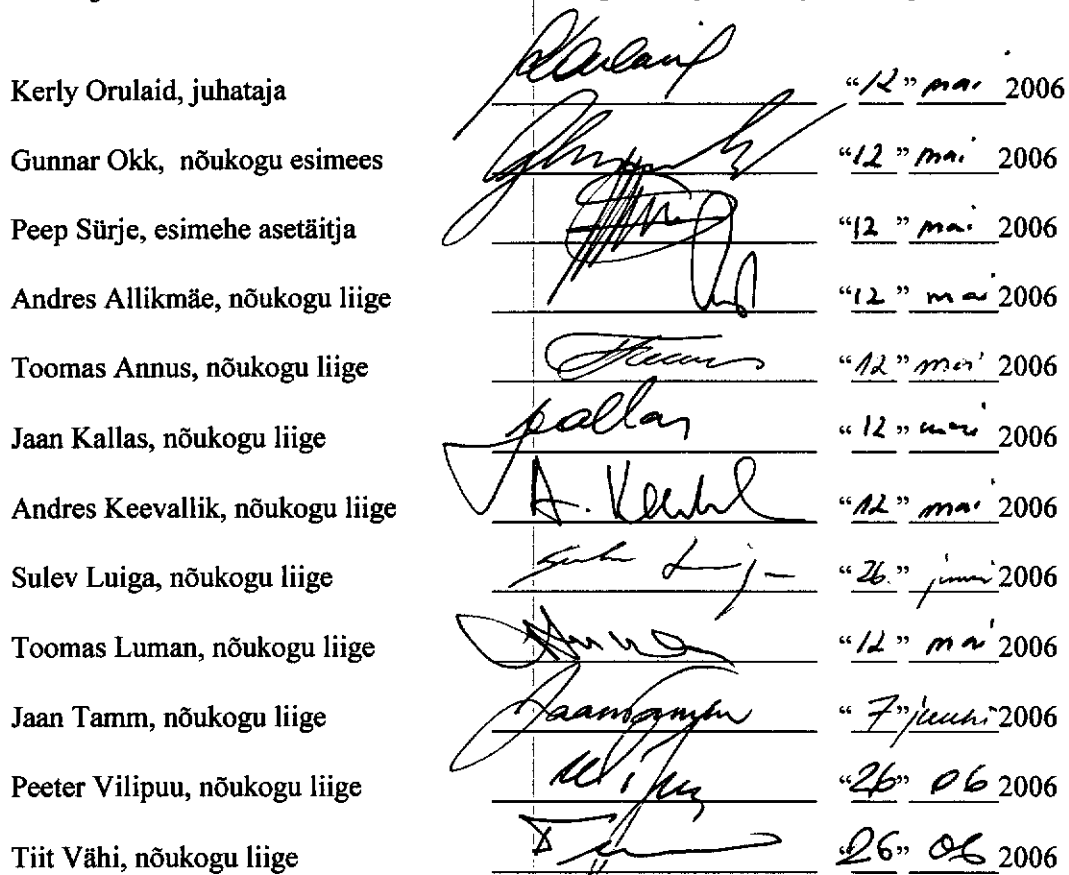 Kerly Orulaid, juhataja “12” mai 2006
Gunnar Okk, nõukogu esimees “12” mai 2006
Peep Sürje, esimehe asetäitja “12” mai 2006
Andres Allikmäe, nõukogu liige “12” mai 2006
Toomas Annus, nõukogu liige “12” mai 2006
Jaan Kallas, nõukogu liige “12” mai 2006
Andres Keevallik, nõukogu liige A. “12” mai 2006
Sulev Luiga, nõukogu liige “26.” juuni 2006
Toomas Luman, nõukogu liige “12” mai 2006
Jaan Tamm, nõukogu liige “7” juuni 2006
Peeter Vilipuu, nõukogu liige “26” 06 2006
Tiit Vähi, nõukogu liige “26” 06 2006